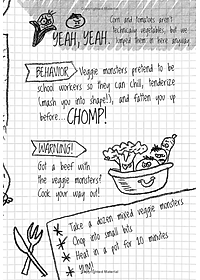 YEAH, YEAH.
Corn and tomatoes aren't
technically vegetables, but we
lumped them in here anyway.
BEHAVIOR
Veggie monsters pretend to be
school workers so they can chill, tenderize
(mash you into shape!), and fatten you up
before... CHOMP!
WARNING!
Got a beef with
the veggie monsters?
Cook your way out!
* Take a dozen mixed veggie monsters
* Chop into small bits
* Heat in a pot for 20 minutes
* YUM!